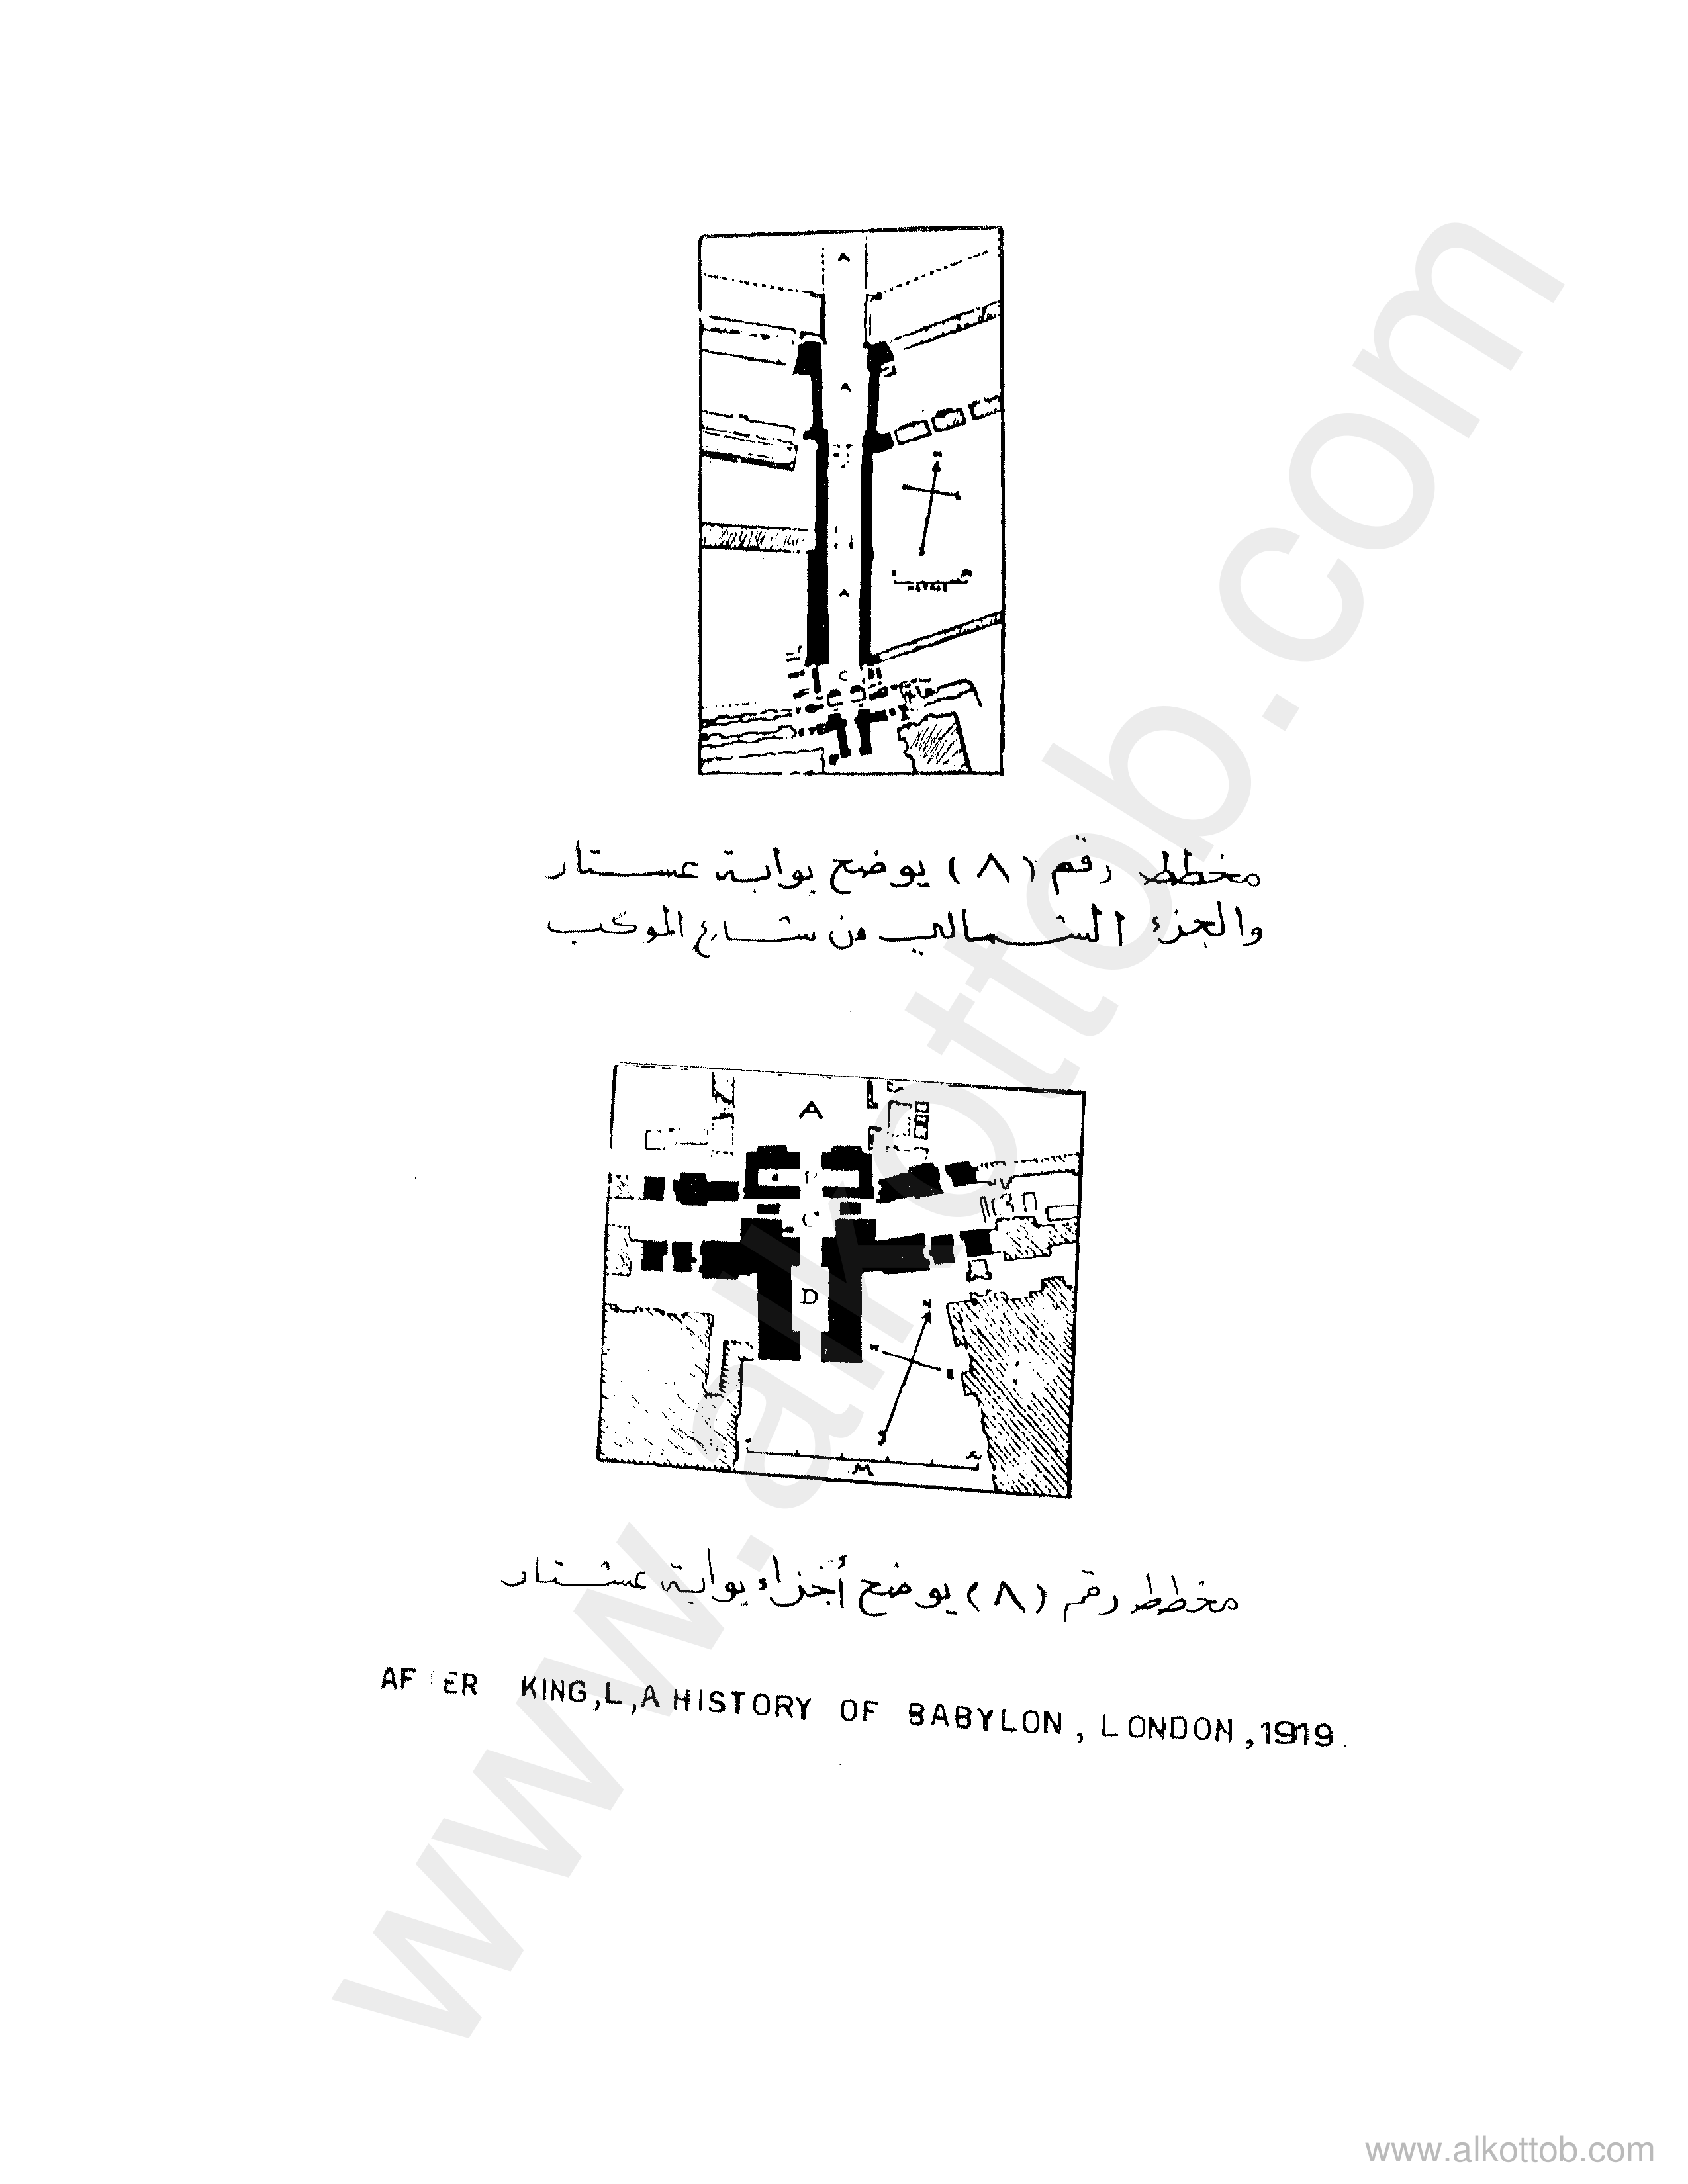 A
A
METRES
A
C
مخطط رقم (٨) يوضح بوابة عستار
والجزء الشمالي من شارع الموكب
A
C
D
N
W
E
S
M
مخطط رقم (٨) يوضح أجزاء بوابة عشتار
AFTER KING,L,A HISTORY OF BABYLON, LONDON,1919.
www.alkottob.com
www.alkottob.com